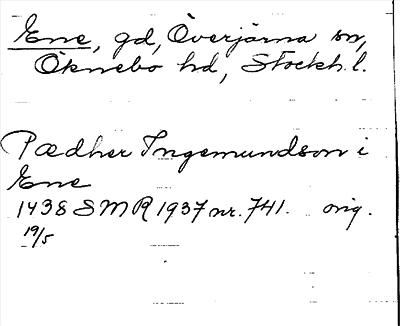 Ene, gd, Överjärna sn,
Öknebo hd, Stockh. l.
Pædher Ingemundson i
Ene
1438 SMR 1937 nr. 741. orig.
19/5